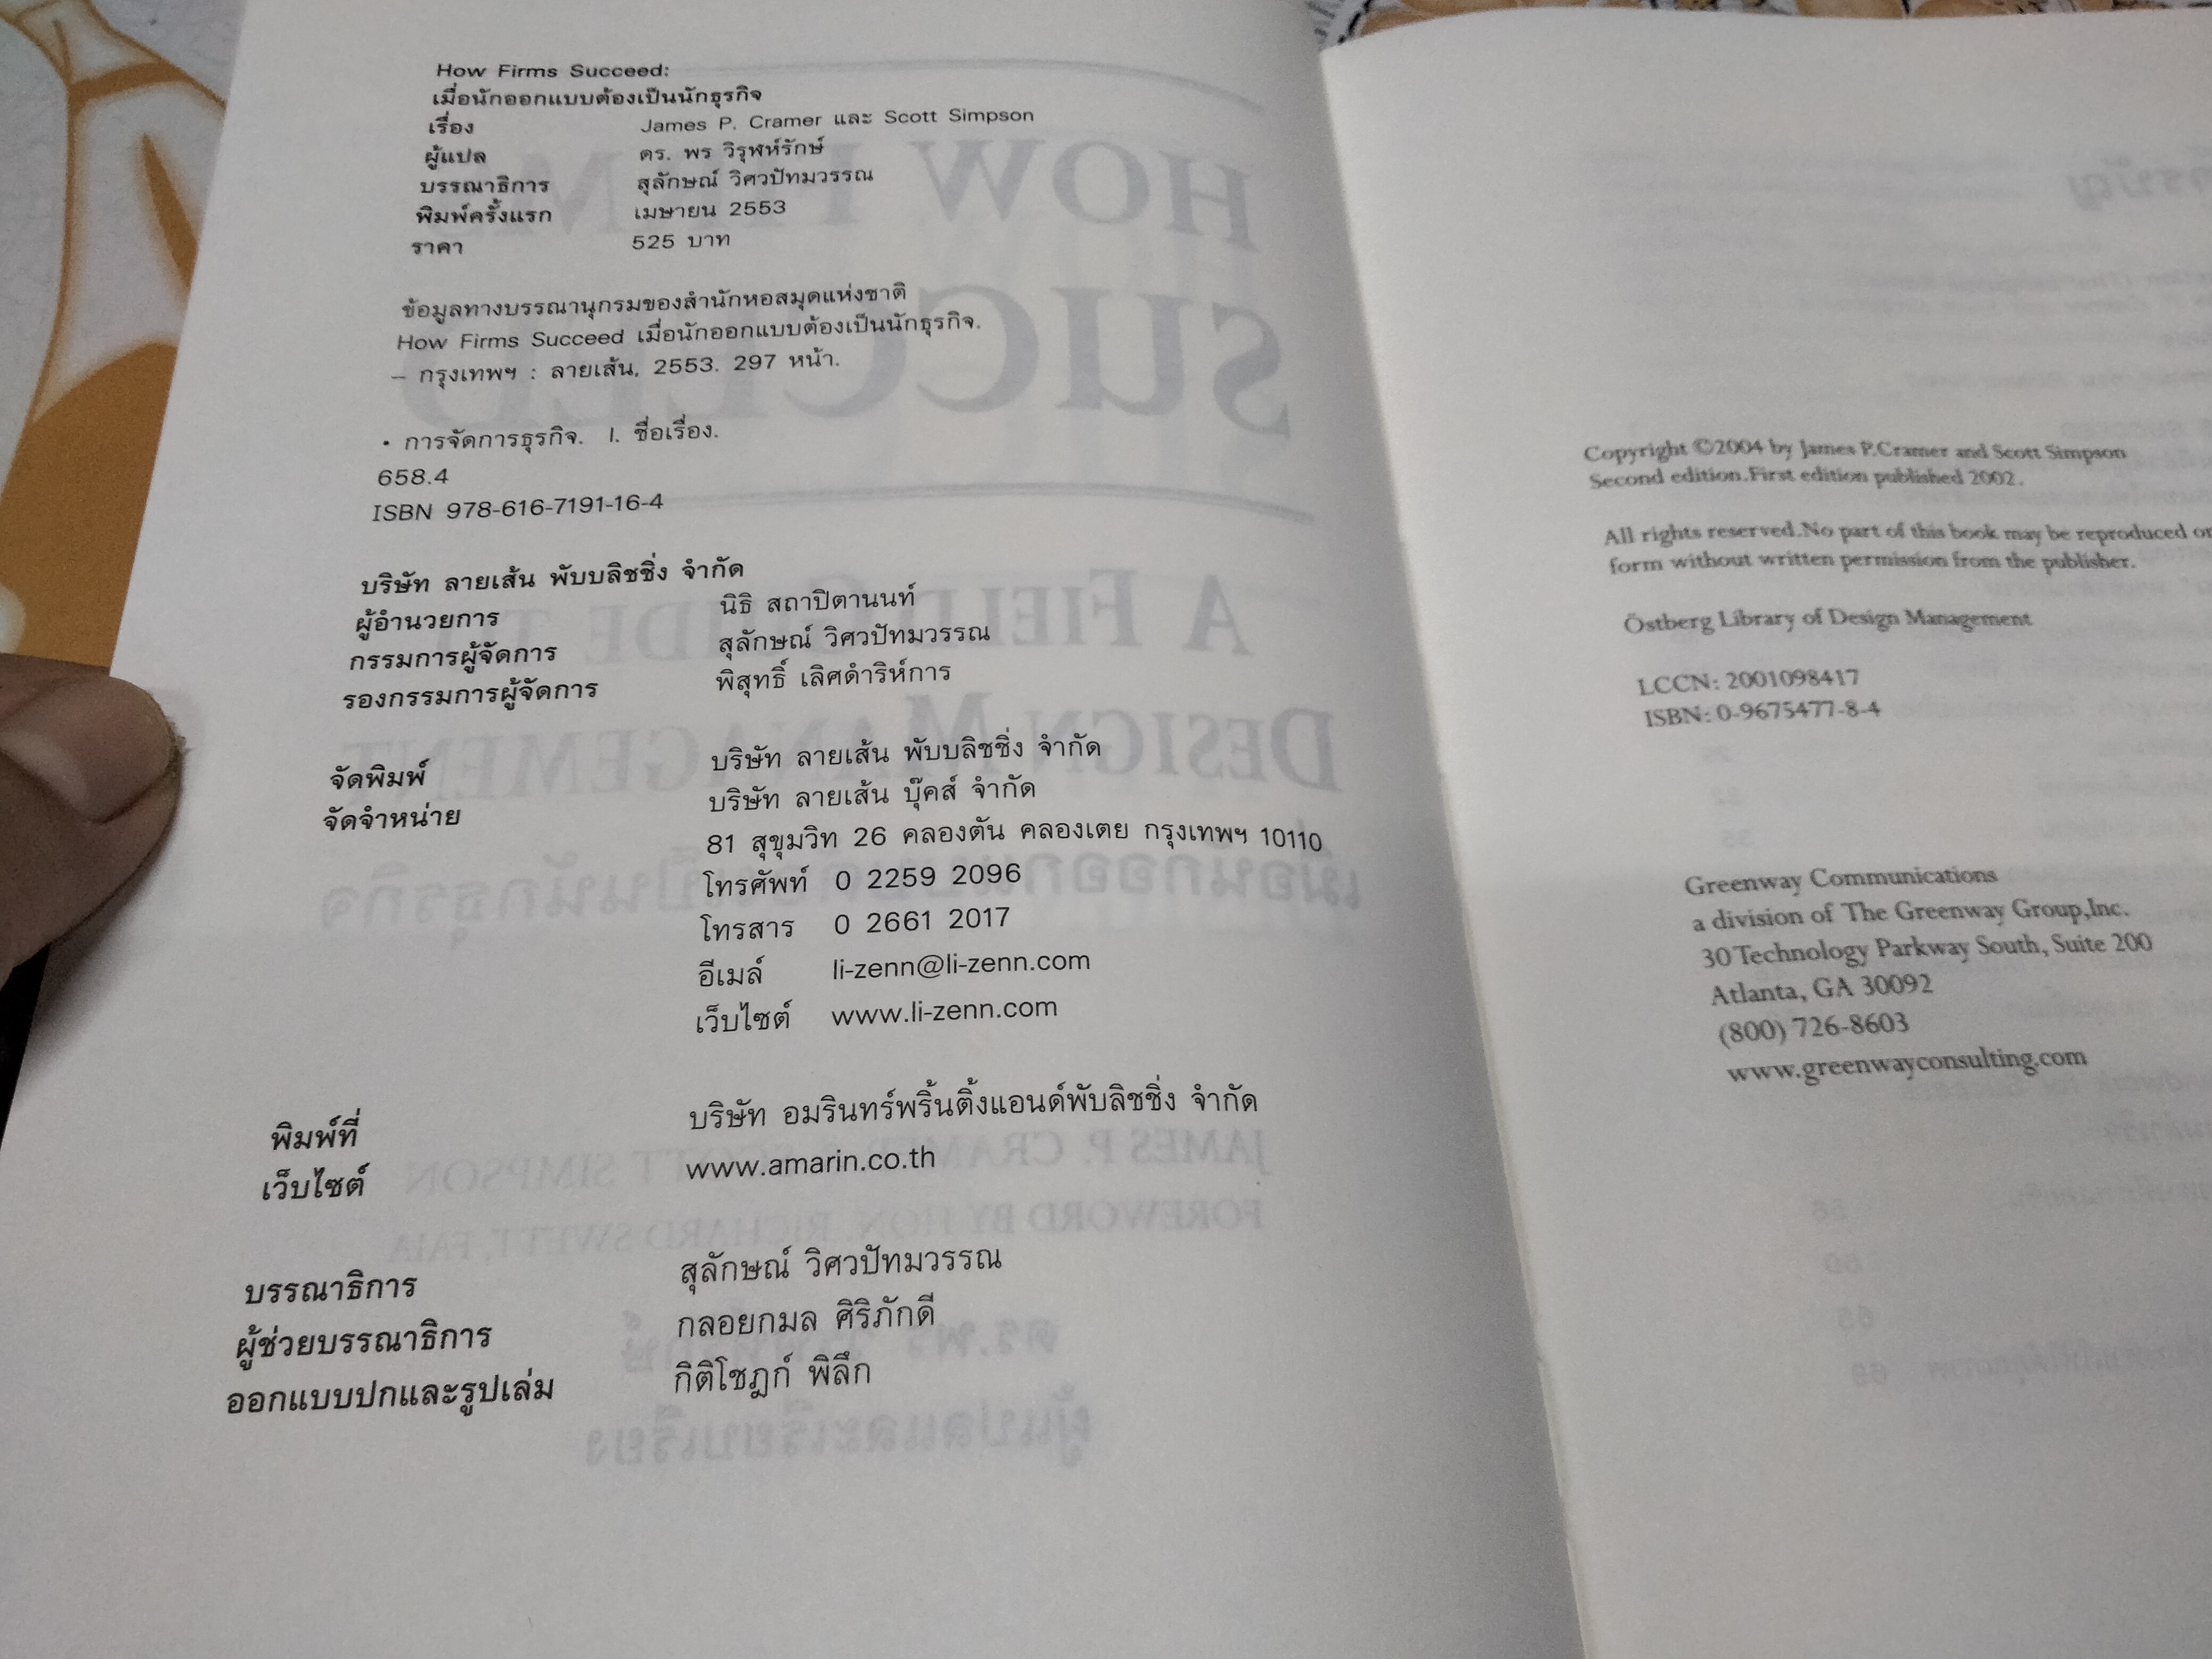 How Firms Succeed:
เมื่อนักออกแบบต้องเป็นนักธุรกิจ
เรื่อง James P. Cramer และ Scott Simpson
ผู้แปล ดร. พร วิรุฬห์รักษ์
บรรณาธิการ สุลักษณ์ วิศวปัทมวรรณ
พิมพ์ครั้งแรก เมษายน 2553
ราคา 525 บาท
ข้อมูลทางบรรณานุกรมของสำนักหอสมุดแห่งชาติ
How Firms Succeed เมื่อนักออกแบบต้องเป็นนักธุรกิจ.
– กรุงเทพฯ : ลายเส้น, 2553. 297 หน้า.
• การจัดการธุรกิจ. I. ชื่อเรื่อง.
658.4
ISBN 978-616-7191-16-4
บริษัท ลายเส้น พับบลิชชิ่ง จำกัด
ผู้อำนวยการ นิธิ สถาปิตานนท์
กรรมการผู้จัดการ สุลักษณ์ วิศวปัทมวรรณ
รองกรรมการผู้จัดการ พิสุทธิ์ เลิศดำริห์การ
จัดพิมพ์ บริษัท ลายเส้น พับบลิชชิ่ง จำกัด
จัดจำหน่าย บริษัท ลายเส้น บุ๊คส์ จำกัด
81 สุขุมวิท 26 คลองตัน คลองเตย กรุงเทพฯ 10110
โทรศัพท์ 0 2259 2096
โทรสาร 0 2661 2017
อีเมล์ li-zenn@li-zenn.com
เว็บไซต์ www.li-zenn.com
พิมพ์ที่ บริษัท อมรินทร์พริ้นติ้งแอนด์พับลิชชิ่ง จำกัด
เว็บไซต์ www.amarin.co.th
บรรณาธิการ สุลักษณ์ วิศวปัทมวรรณ
ผู้ช่วยบรรณาธิการ กลอยกมล ศิริภักดี
ออกแบบปกและรูปเล่ม กิติโชฎก์ พิลึก
Copyright ©2004 by James P.Cramer and Scott Simpson
Second edition.First edition published 2002.
All rights reserved.No part of this book may be reproduced or
form without written permission from the publisher.
Östberg Library of Design Management
LCCN: 2001098417
ISBN: 0-9675477-8-4
Greenway Communications
a division of The Greenway Group,Inc.
30 Technology Parkway South, Suite 200
Atlanta, GA 30092
(800) 726-8603
www.greenwayconsulting.com